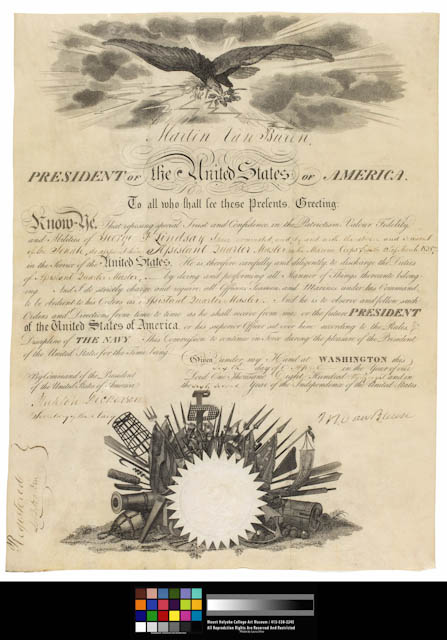 Martin Van Buren,
PRESIDENT OF the United States OF AMERICA.
To all who shall see these Presents, Greeting:
Know Ye, That reposing special Trust and Confidence in the Patriotism, Valour, Fidelity,
and Abilities of George F Lindsay I
Assistant Quarter Master
in the Service of the United States. He is therefore carefully and diligently to discharge the Duties
of Assistant Quarter Master by doing and performing all Manner of Things thereunto belong-
ing. And I do strictly charge and require all Officers, Seamen and Marines under his Command,
to be obedient to his Orders as Assistant Quarter Master. And he is to observe and follow such
Orders and Directions from time to time as he shall receive from me, or the future PRESIDENT
of the United States of America, or his superior Officer set over him, according to the Rules &
Discipline of THE NAVY. This Commission to continue in Force during the pleasure of the President
of the United States for the time being.
Given under my Hand at WASHINGTON this
day of in the Year of our
Lord One Thousand Eight Hundred and in
the Year of the Independence of the United States
By Command of the President
of the United States of America
Mahlon Dickerson
Secretary of the Navy
M Van Buren
Registered
Mount Holyoke College Art Museum / 413-538-2245
All Reproduction Rights Are Reserved And Restricted